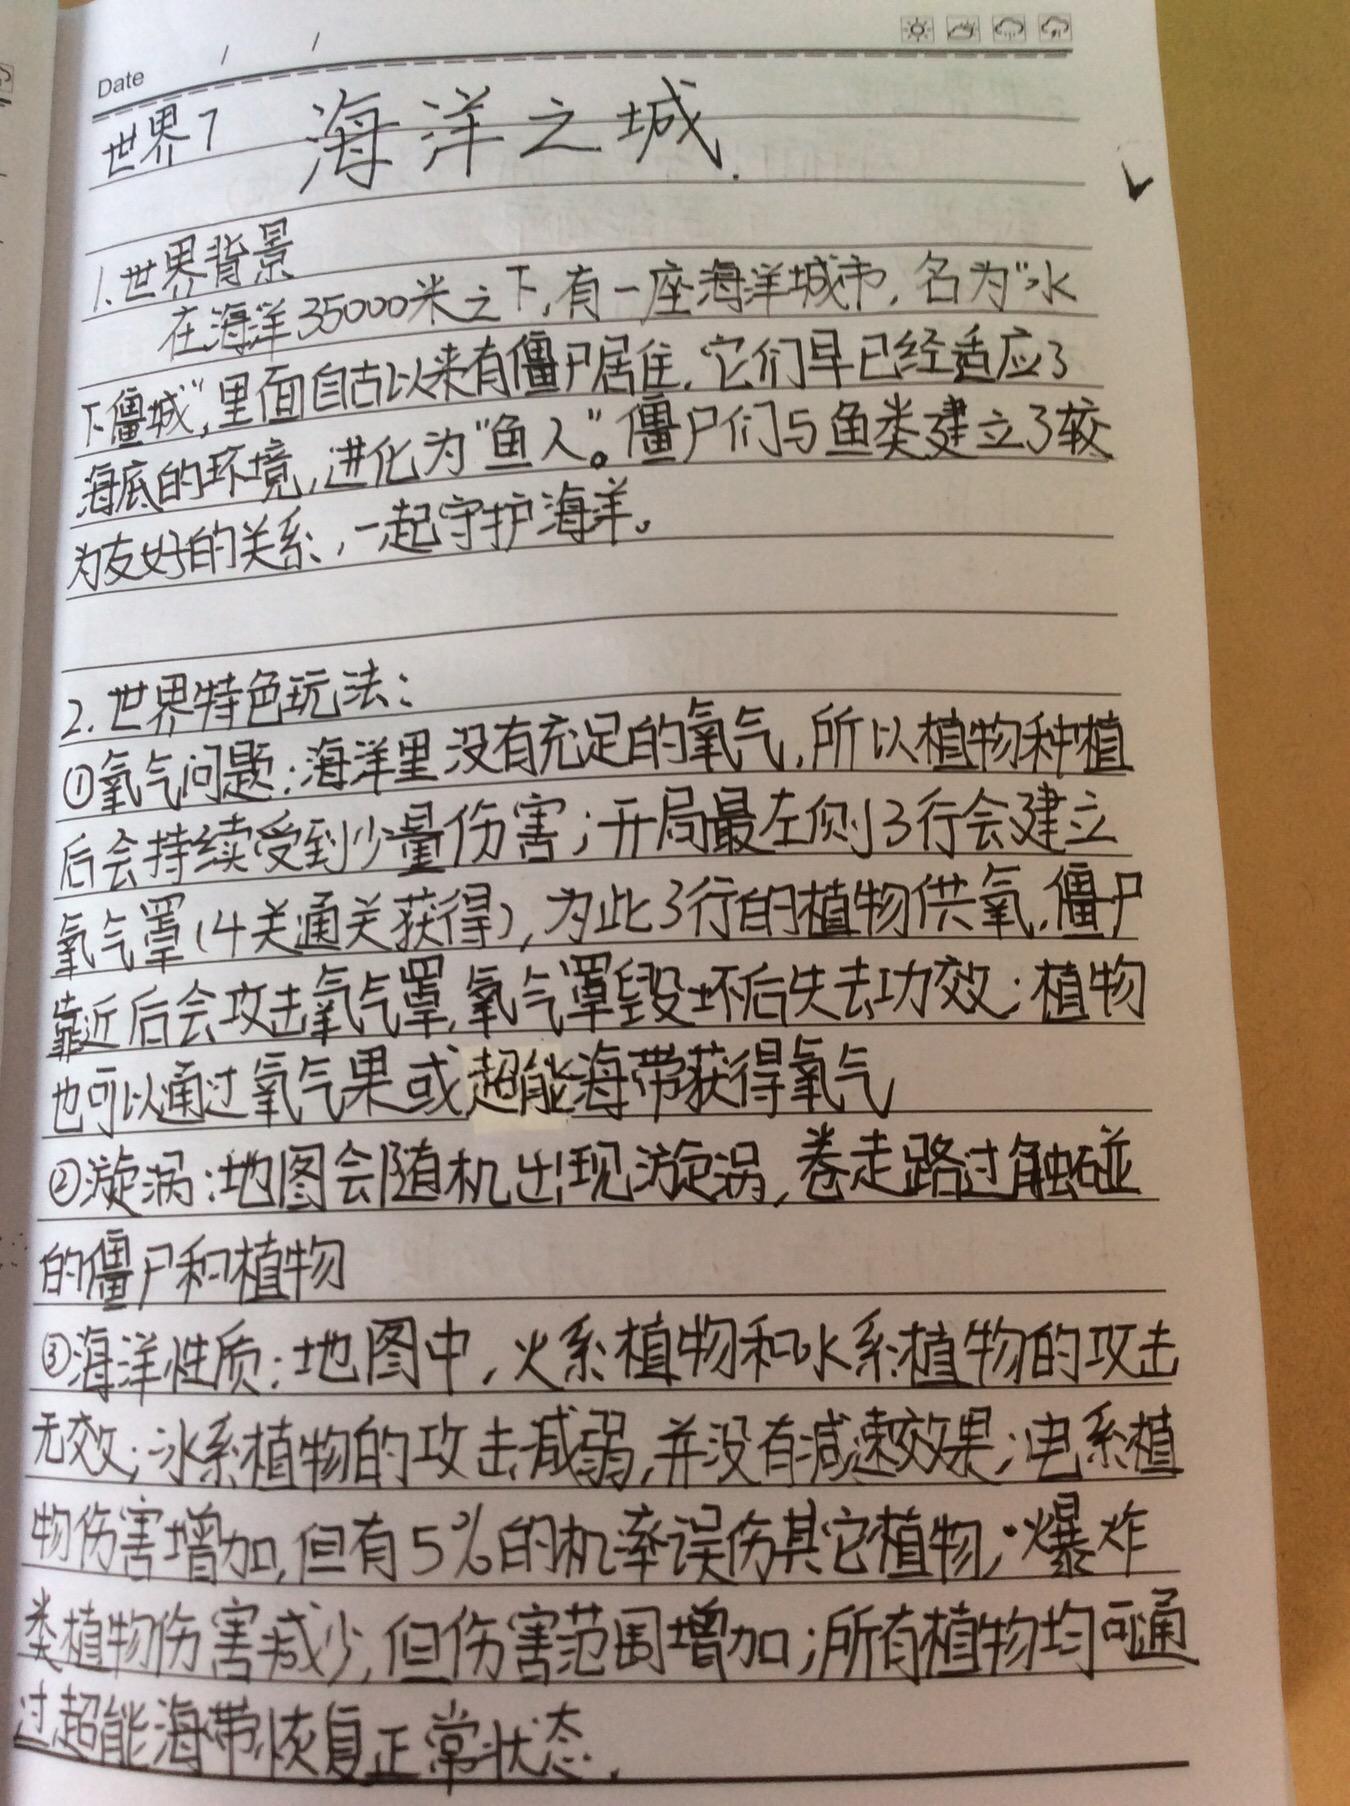 Date / /
世界7 海洋之城.
1.世界背景
在海洋35000米之下,有一座海洋城市,名为"水
下僵城",里面自古以来有僵尸居住.它们早已经适应了
海底的环境,进化为"鱼人"。僵尸们与鱼类建立了较
为友好的关系,一起守护海洋。
2.世界特色玩法:
①氧气问题:海洋里没有充足的氧气,所以植物种植
后会持续受到少量伤害;开局最左侧3行会建立
氧气罩(4关通关获得),为此3行的植物供氧.僵尸
靠近后会攻击氧气罩,氧气罩毁坏后失去功效;植物
也可以通过氧气果或超能海带获得氧气
②漩涡:地图会随机出现漩涡,卷走路过触碰
的僵尸和植物
③海洋性质:地图中,火系植物和水系植物的攻击
无效;冰系植物的攻击减弱,并没有减速效果;电系植
物伤害增加,但有5%的机率误伤其它植物;爆炸
类植物伤害减少,但伤害范围增加;所有植物均可通
过超能海带恢复正常状态.